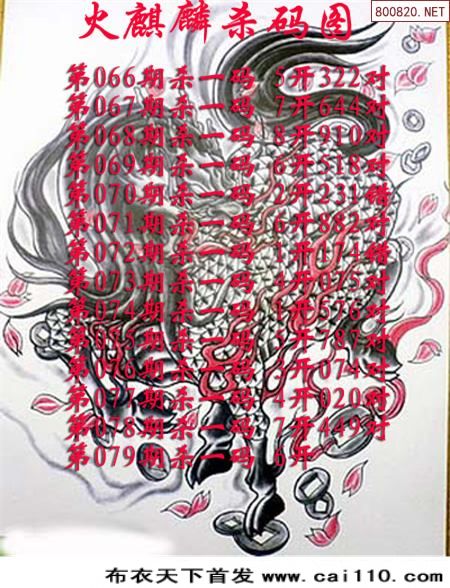 800820.NET
火麒麟杀码图
第066期杀一码 5开322对
第067期杀一码 7开644对
第068期杀一码 8开910对
第069期杀一码 6开518对
第070期杀一码 2开231错
第071期杀一码 6开882对
第072期杀一码 1开174错
第073期杀一码 4开075对
第074期杀一码 1开576对
第075期杀一码 开787对
第076期杀一码 开074对
第077期杀一码 4开020对
第078期杀一码 7开449对
第079期杀一码 6开
布衣天下首发 www.cai110.com